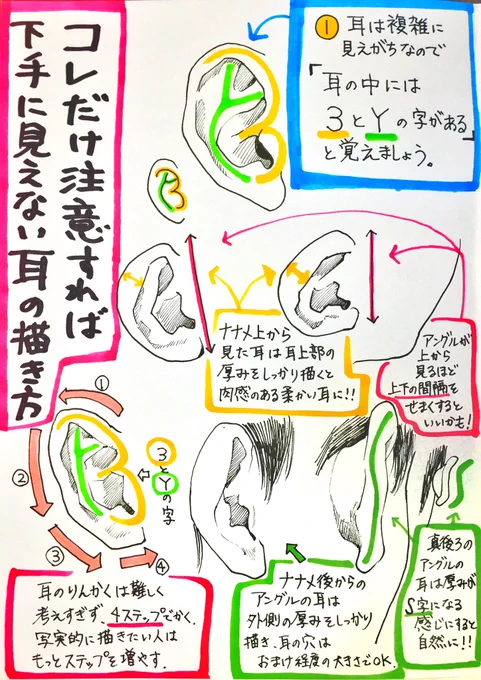 コレだけ注意すれば
下手に見えない耳の描き方
① 耳は複雑に
見えがちなので
「耳の中には
3とYの字がある」
と覚えましょう。
ナナメ上から
見た耳は耳上部の
厚みをしっかり描くと
肉感のある柔かい耳に!!
アングルが
上から
見るほど
上下の間隔を
せまくすると
いいかも!
①
②
③
④
3
と
Y
の
字
耳のりんかくは難しく
考えすぎず、4ステップでかく。
写実的に描きたい人は
もっとステップを増やす。
ナナメ後からの
アングルの耳は
外側の厚みをしっかり
描き、耳の穴は
おまけ程度の大きさでOK.
真後ろの
アングルの
耳は厚みが
S字になる
感じにすると
自然に!!